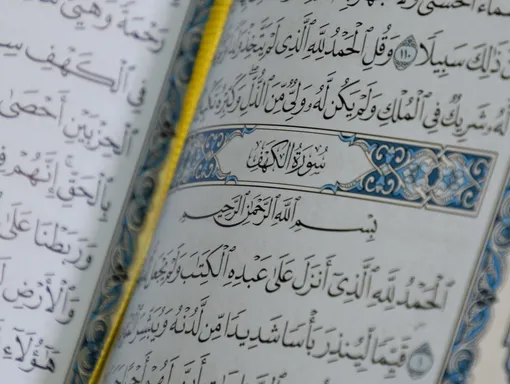 ٱلْحُسْنَىٰ
ذَٰلِكَ سَبِيلًا ١١٠ وَقُلِ ٱلْحَمْدُ لِلَّهِ ٱلَّذِى لَمْ يَتَّخِذْ
لَّهُۥ شَرِيكٌ فِى ٱلْمُلْكِ وَلَمْ يَكُن لَّهُۥ وَلِىٌّ مِّنَ ٱلذُّلِّ وَكَبِّرْهُ
سُورَةُ الكَهْفِ
بِسْمِ ٱللَّهِ ٱلرَّحْمَٰنِ ٱلرَّحِيمِ
ٱلْحَمْدُ لِلَّهِ ٱلَّذِىٓ أَنزَلَ عَلَىٰ عَبْدِهِ ٱلْكِتَٰبَ وَلَمْ يَجْعَل
١ قَيِّمًا لِّيُنذِرَ بَأْسًا شَدِيدًا مِّن لَّدُنْهُ وَيُبَشِّرَ
أَنَّ لَهُمْ أَجْرًا
رَحْمَةً وَهَيِّئْ
فِى ٱلْكَهْفِ
ٱلْحِزْبَيْنِ أَحْصَىٰ
بِٱلْحَقِّ إِنَّهُمْ
وَرَبَطْنَا عَلَىٰ
وَٱلْأَرْضِ
هَٰٓؤُلَآءِ